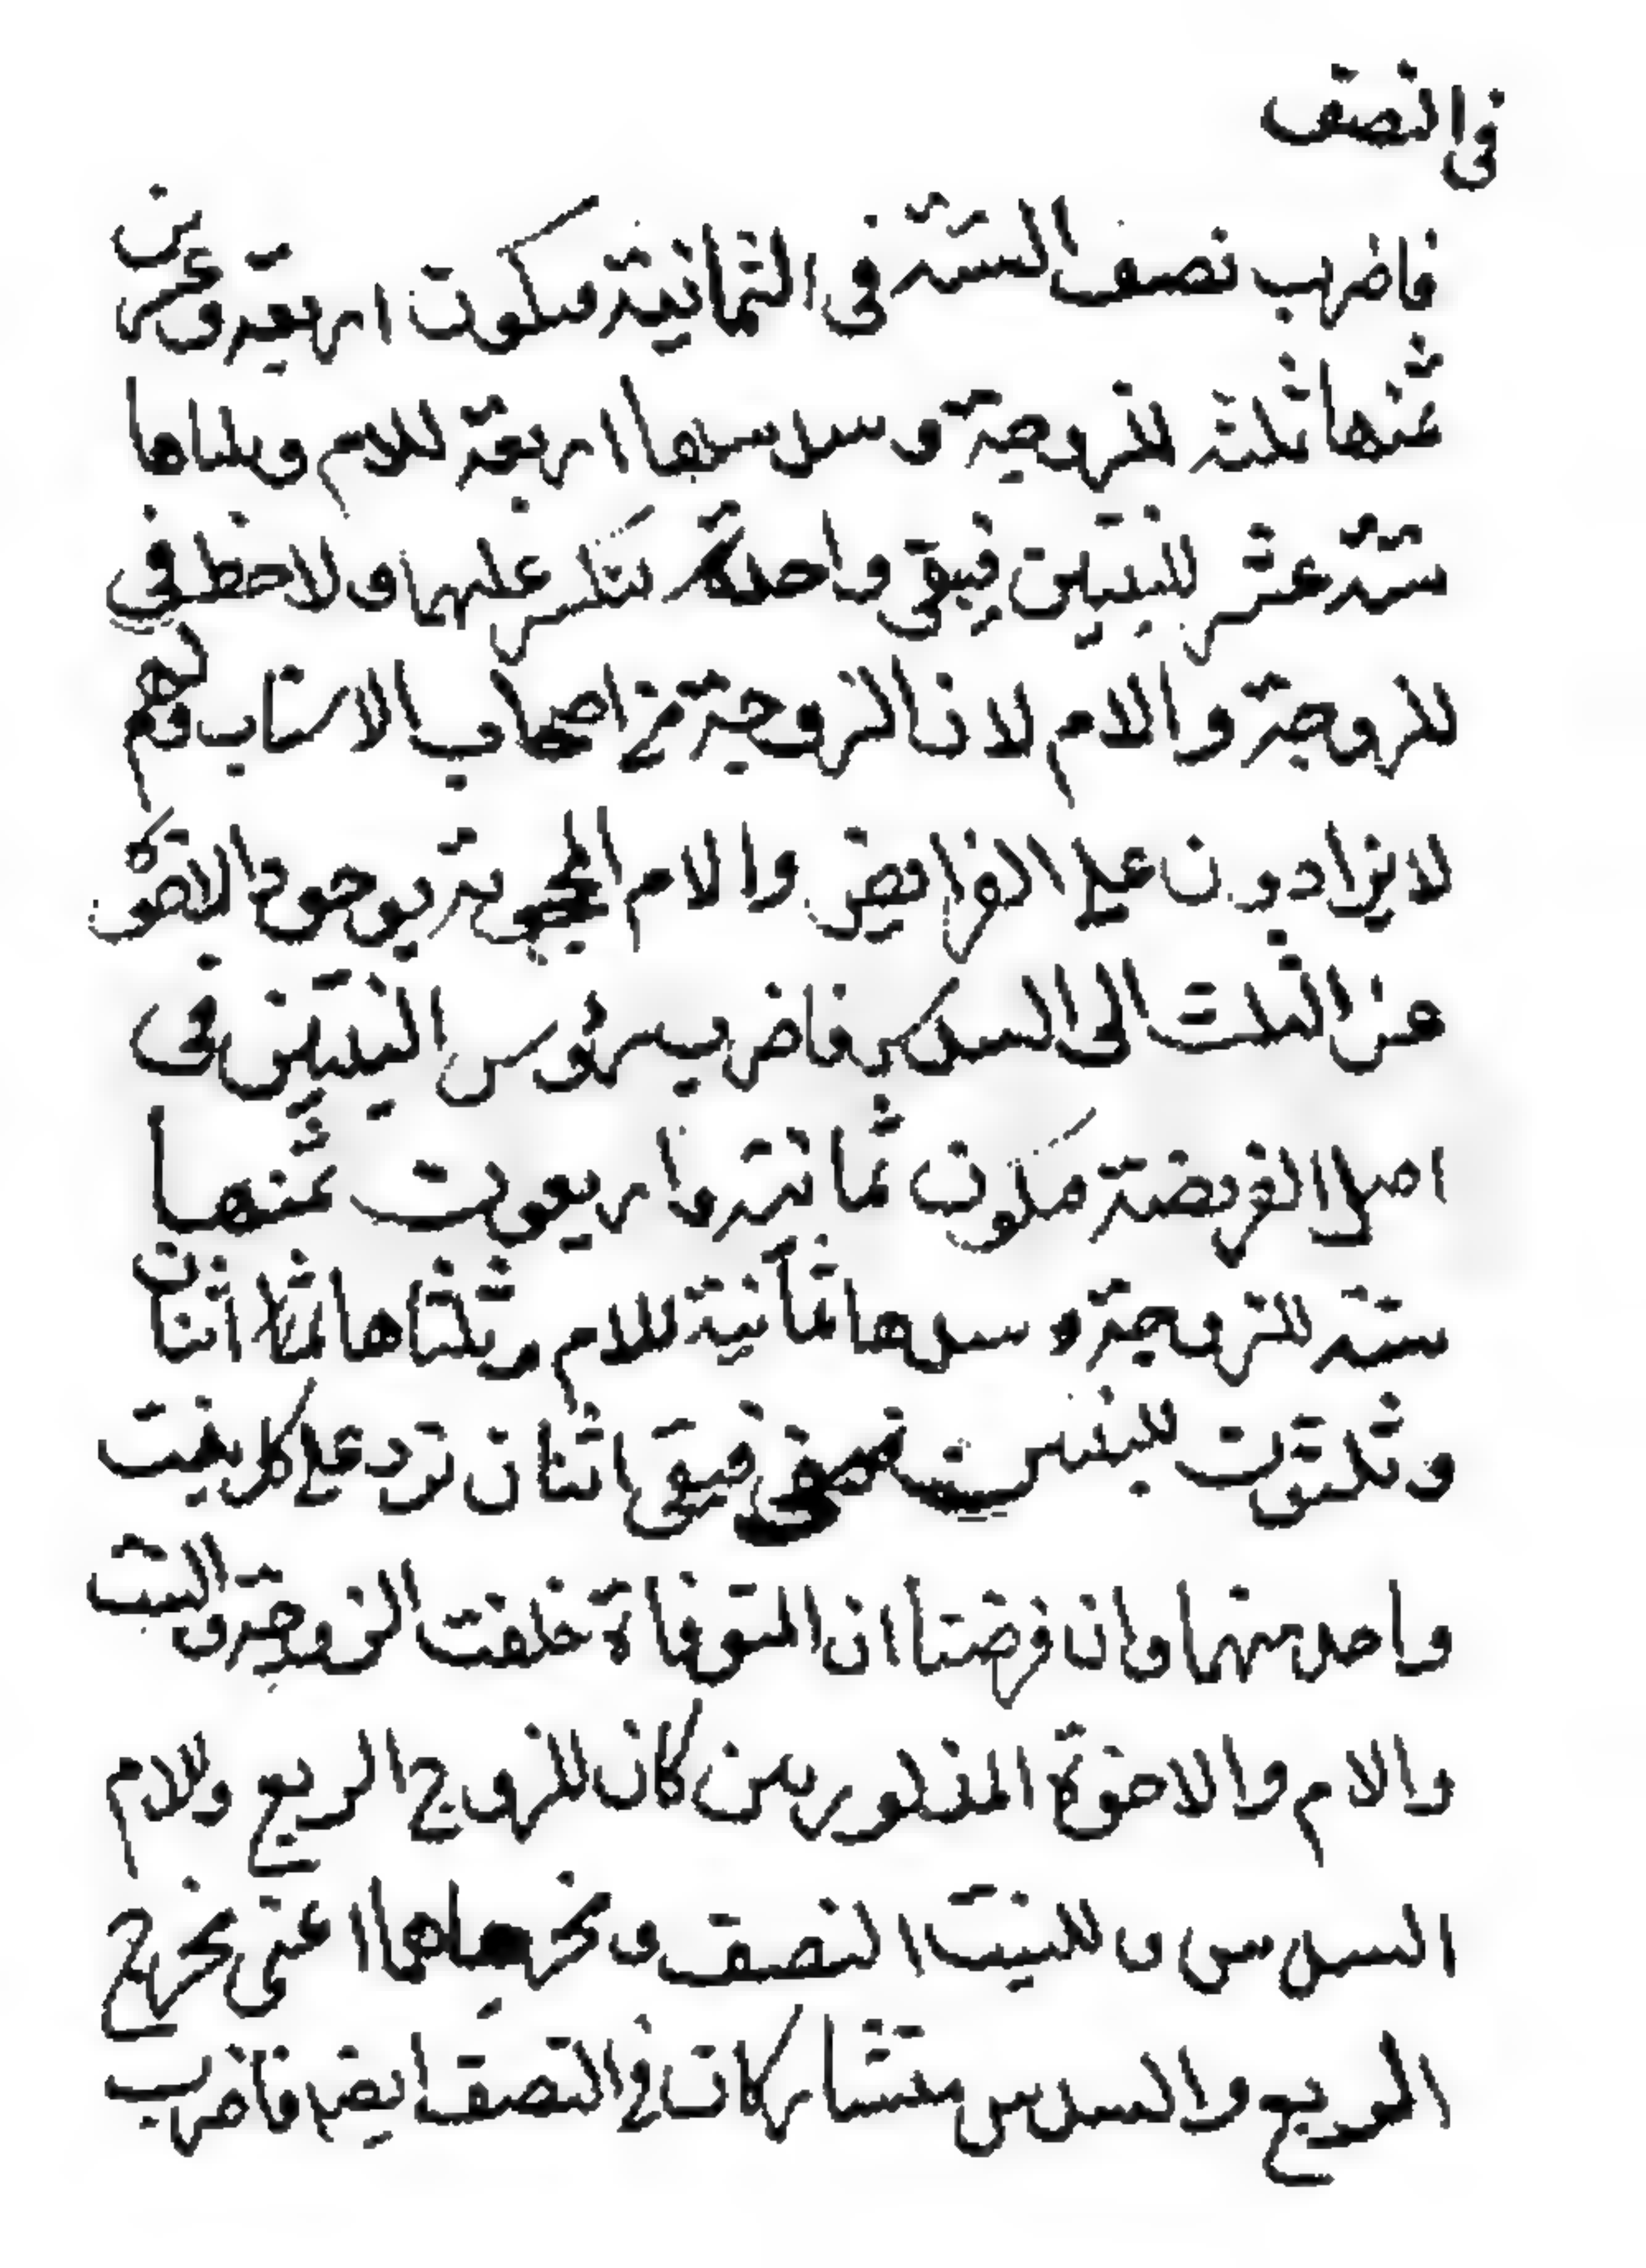 في النصف
فاضرب نصف الستة في الثمانية فيكون اربعة وعشرين
ثمنها ثلثة للزوجة و سدسها اربعة للام وثلثاها
ستة عشر للبنتين فيبقى واحدة تنكسر عليهما ولاحظ في
للزوجة والام لان الزوجة من اصحاب الاسباب وهم
لا يزادون على الفرايض والام المحجوبة بوجود الاخوة
عن الثلث الى السدس فاضرب رؤس البنتين في
اصل الفريضة فيكون ثمانية واربعون ثمنها
ستة للزوجة و سدسها ثمانية للام و ثلثاها اثنان
وثلثون للبنتين فيبقى اثنان ترد على كل بنت
واحد منهما وان فرضنا ان المتوفاة خلفت الزوج والبنت
والام والاخوة المذكورين كان للزوج الربع وللام
السدس و للبنت النصف و مخرجاهما اعنى مخرج
الربع والسدس متشاركان في النصف ايضا فاضرب